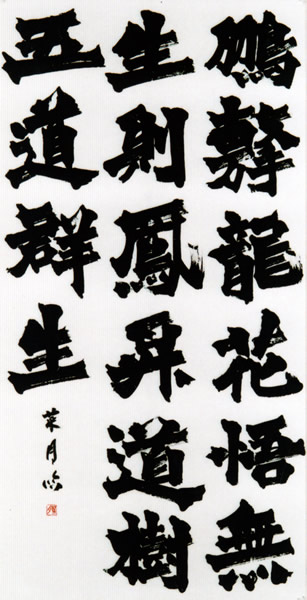 鵬擊龍花悟無
生則鳳昇道樹
五道群生
菜月臨